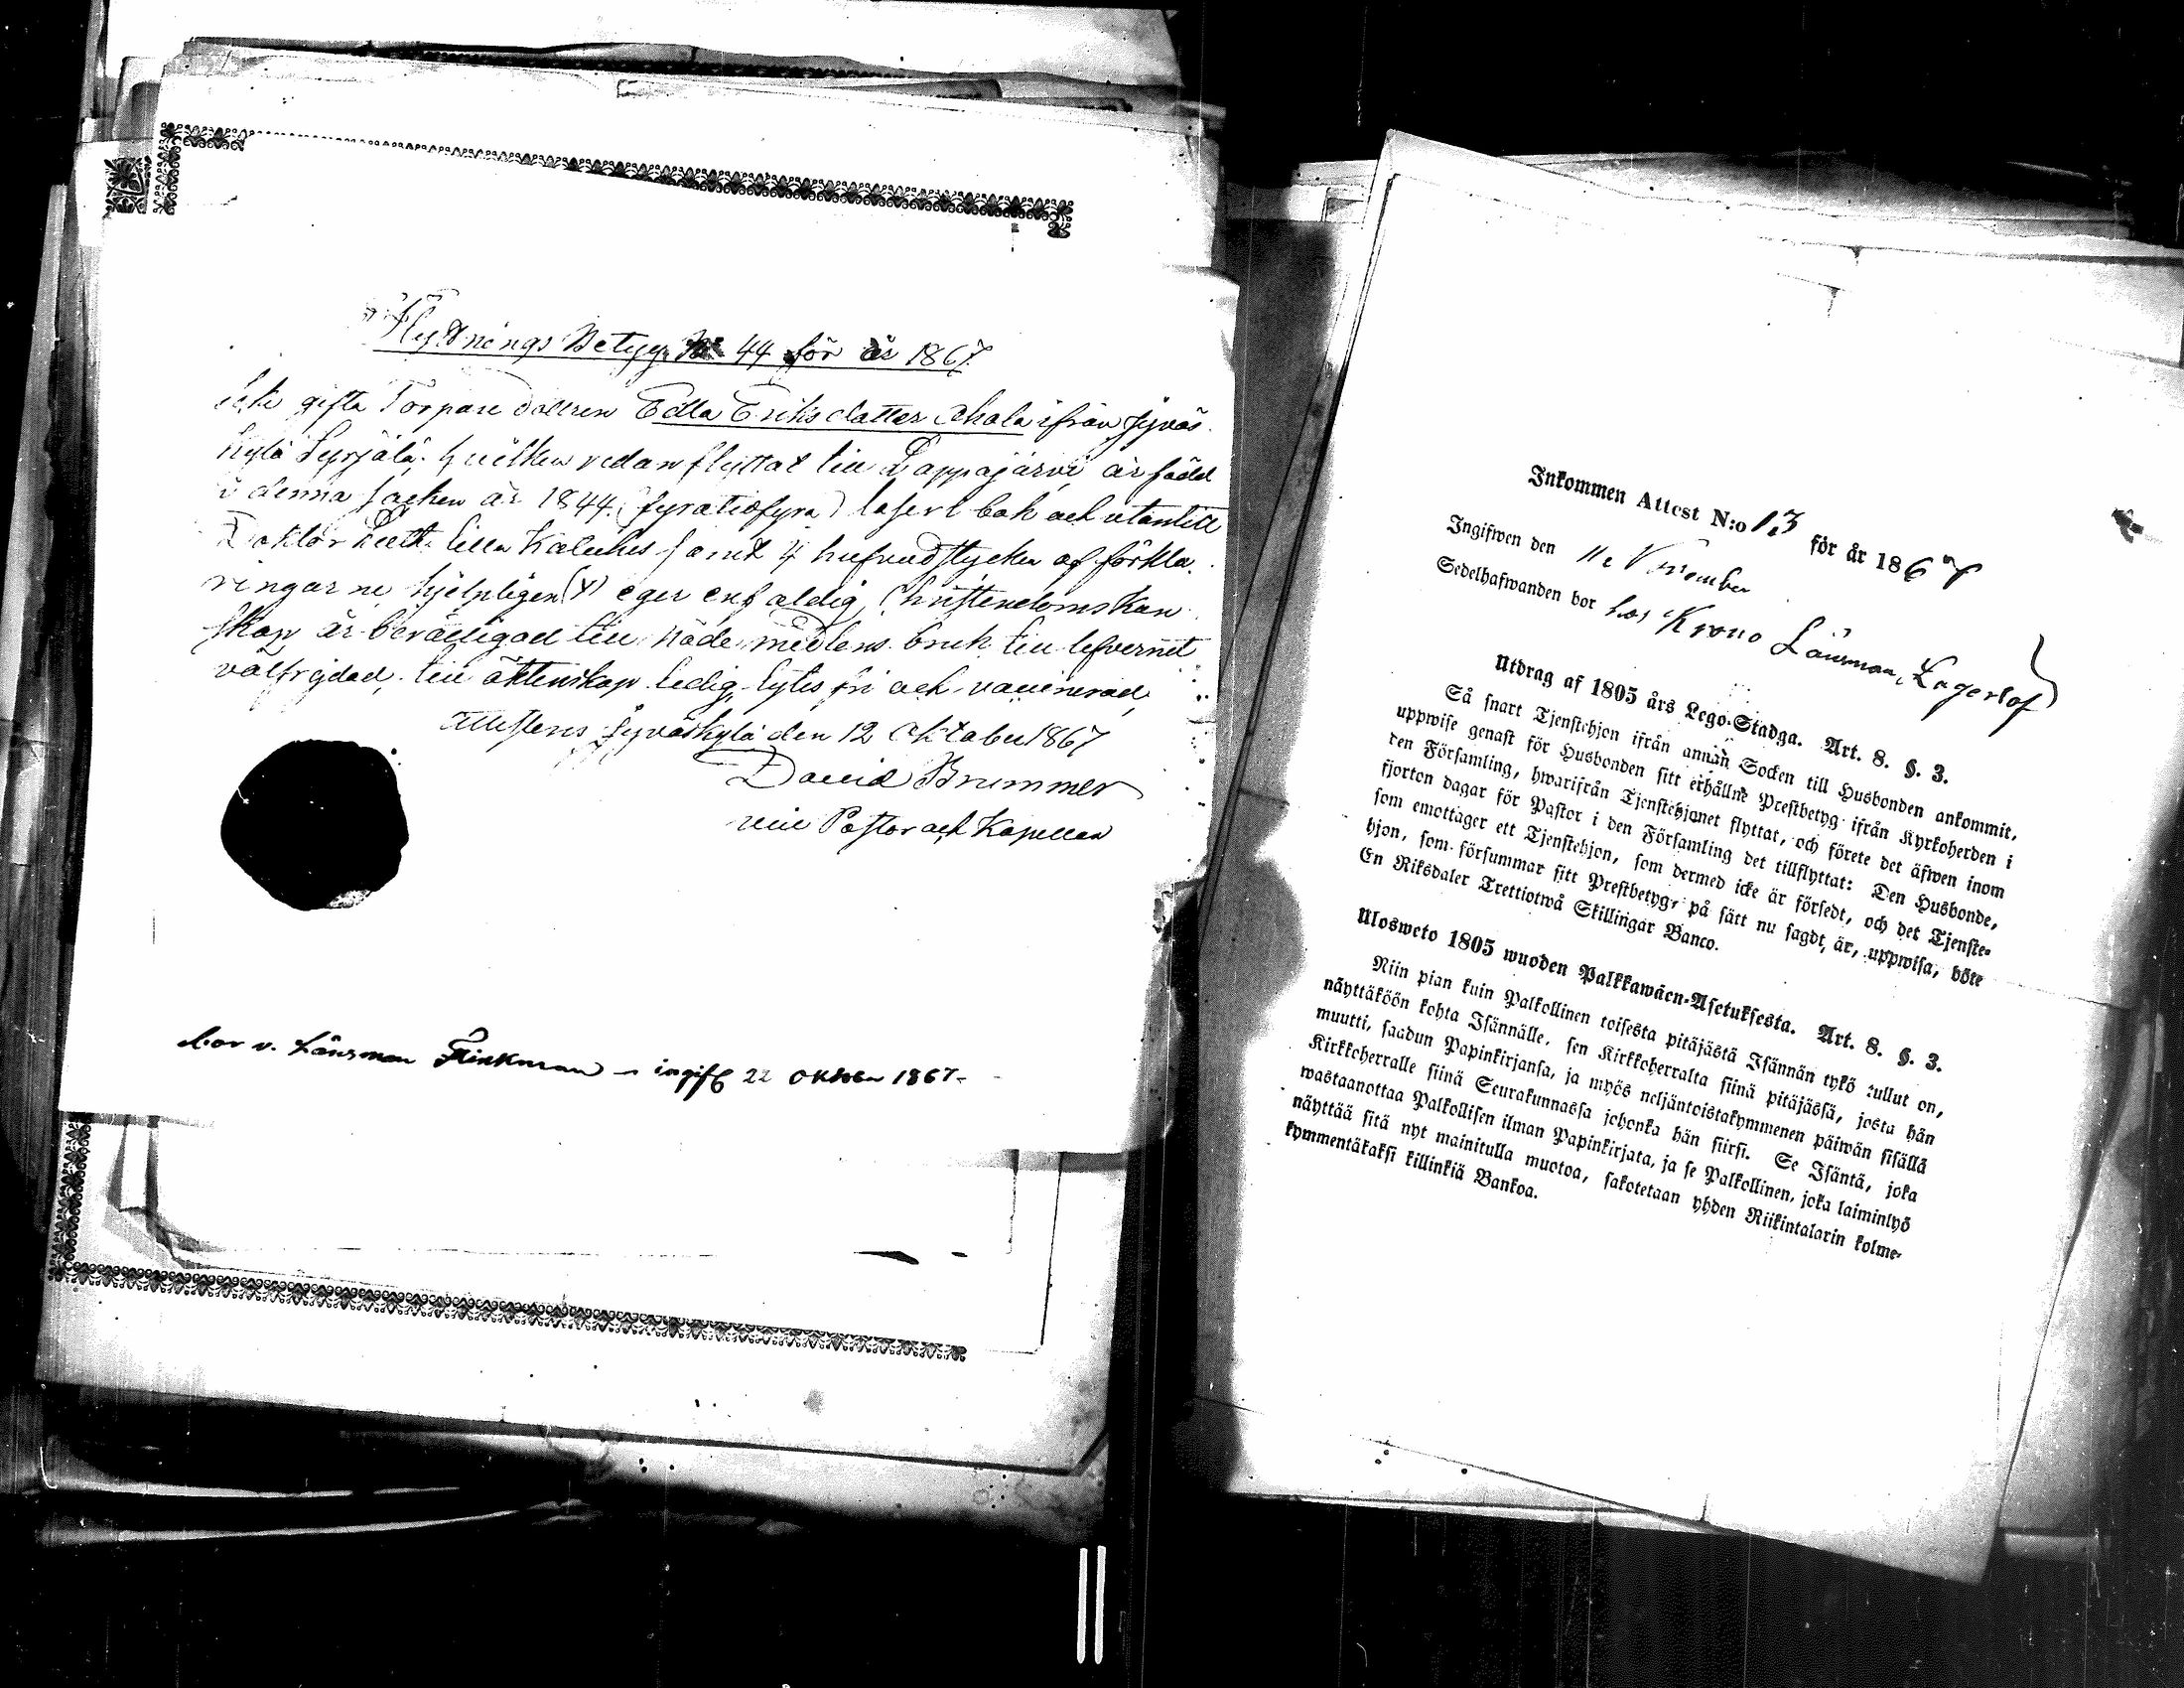 Flyttnings Betyg No 44 för år 1867
Icke gifta Torpare dottren Edla Eriks dotter Ahola ifrån Jyväs
kylä Syrjälä, hvilken redan flyttat till Lappajärvi är född
i denna socken år 1844 (fyratiofyra) läser i bok och utantill
Doktor Luth. lilla Kateches samt 4 hufvudstycken af förkla
ringarne hjelpligen (x) eger enfaldig Christendoms kun
skap är berättigad till nådemedlens bruk till lefvernet
välfrejdad, till äktenskap ledig, lytes fri och vaccinerad,
attesteras Jyväskylä den 12 Oktober 1867
David Brummer
vice Pastor och Kapellan
bor v. Länsman Flinkman - ingift 22 Oktober 1867.
Inkommen Attest N:o 13 för år 1867
Ingifwen den 11 November
Sedelhafwanden bor hos Krono Länsman Lagerlöf
Utdrag af 1805 års Lego-Stadga. Art. 8. §. 3.
Så snart Tjenstehjon ifrån annan Socken till Husbonden ankommit,
uppwise genast för Husbonden sitt erhållne Prestbetyg ifrån Kyrkoherden i
den Församling, hwarifrån Tjenstehjonet flyttat, och förete det äfwen inom
fjorton dagar för Pastor i den Församling det tillflyttat: Den Husbonde,
som emottager ett Tjenstehjon, som dermed icke är försedt, och det Tjenste-
hjon, som försummar sitt Prestbetyg, på sätt nu sagdt är, uppwisa, böte
En Riksdaler Trettiotwå Skillingar Banco.
Ulosweto 1805 wuoden Palkkawäen-Asetuksesta. Art. 8. §. 3.
Niin pian kuin Palkollinen toisesta pitäjästä Isännän tykö tullut on,
näyttäköön kohta Isännälle, sen Kirkkoherralta siinä pitäjässä, josta hän
muutti, saadun Papinkirjansa, ja myös neljäntoistakymmenen päiwän sisällä
Kirkkoherralle siinä Seurakunnassa johonka hän siirsi. Se Isäntä, joka
wastaanottaa Palkollisen ilman Papinkirjata, ja se Palkollinen, joka laiminlyö
näyttää sitä nyt mainitulla muotoa, sakotetaan yhden Riikintalarin kolme-
kymmentäkaksi killinkiä Bankoa.